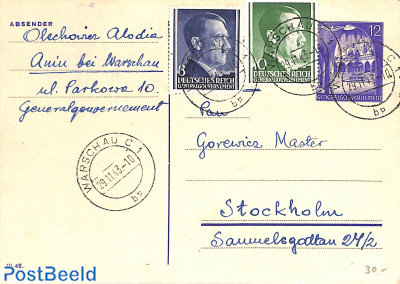 ABSENDER
Olechowicz Alodia
Anin bei Warschau
ul. Parkowa 10.
Generalgouvernement
8
DEUTSCHES REICH
GENERALGOUVERNEMENT
6
DEUTSCHES REICH
GENERALGOUVERNEMENT
12
GENERALGOUVERNEMENT
WARSCHAU C 1
29.11.43.-10
bb
WARSCHAU C 1
29.11.43
bb
29.11
bb
Pan
Gorewicz Master
Stockholm
Sammelsgodtan 24/2
30.-
PostBeeld